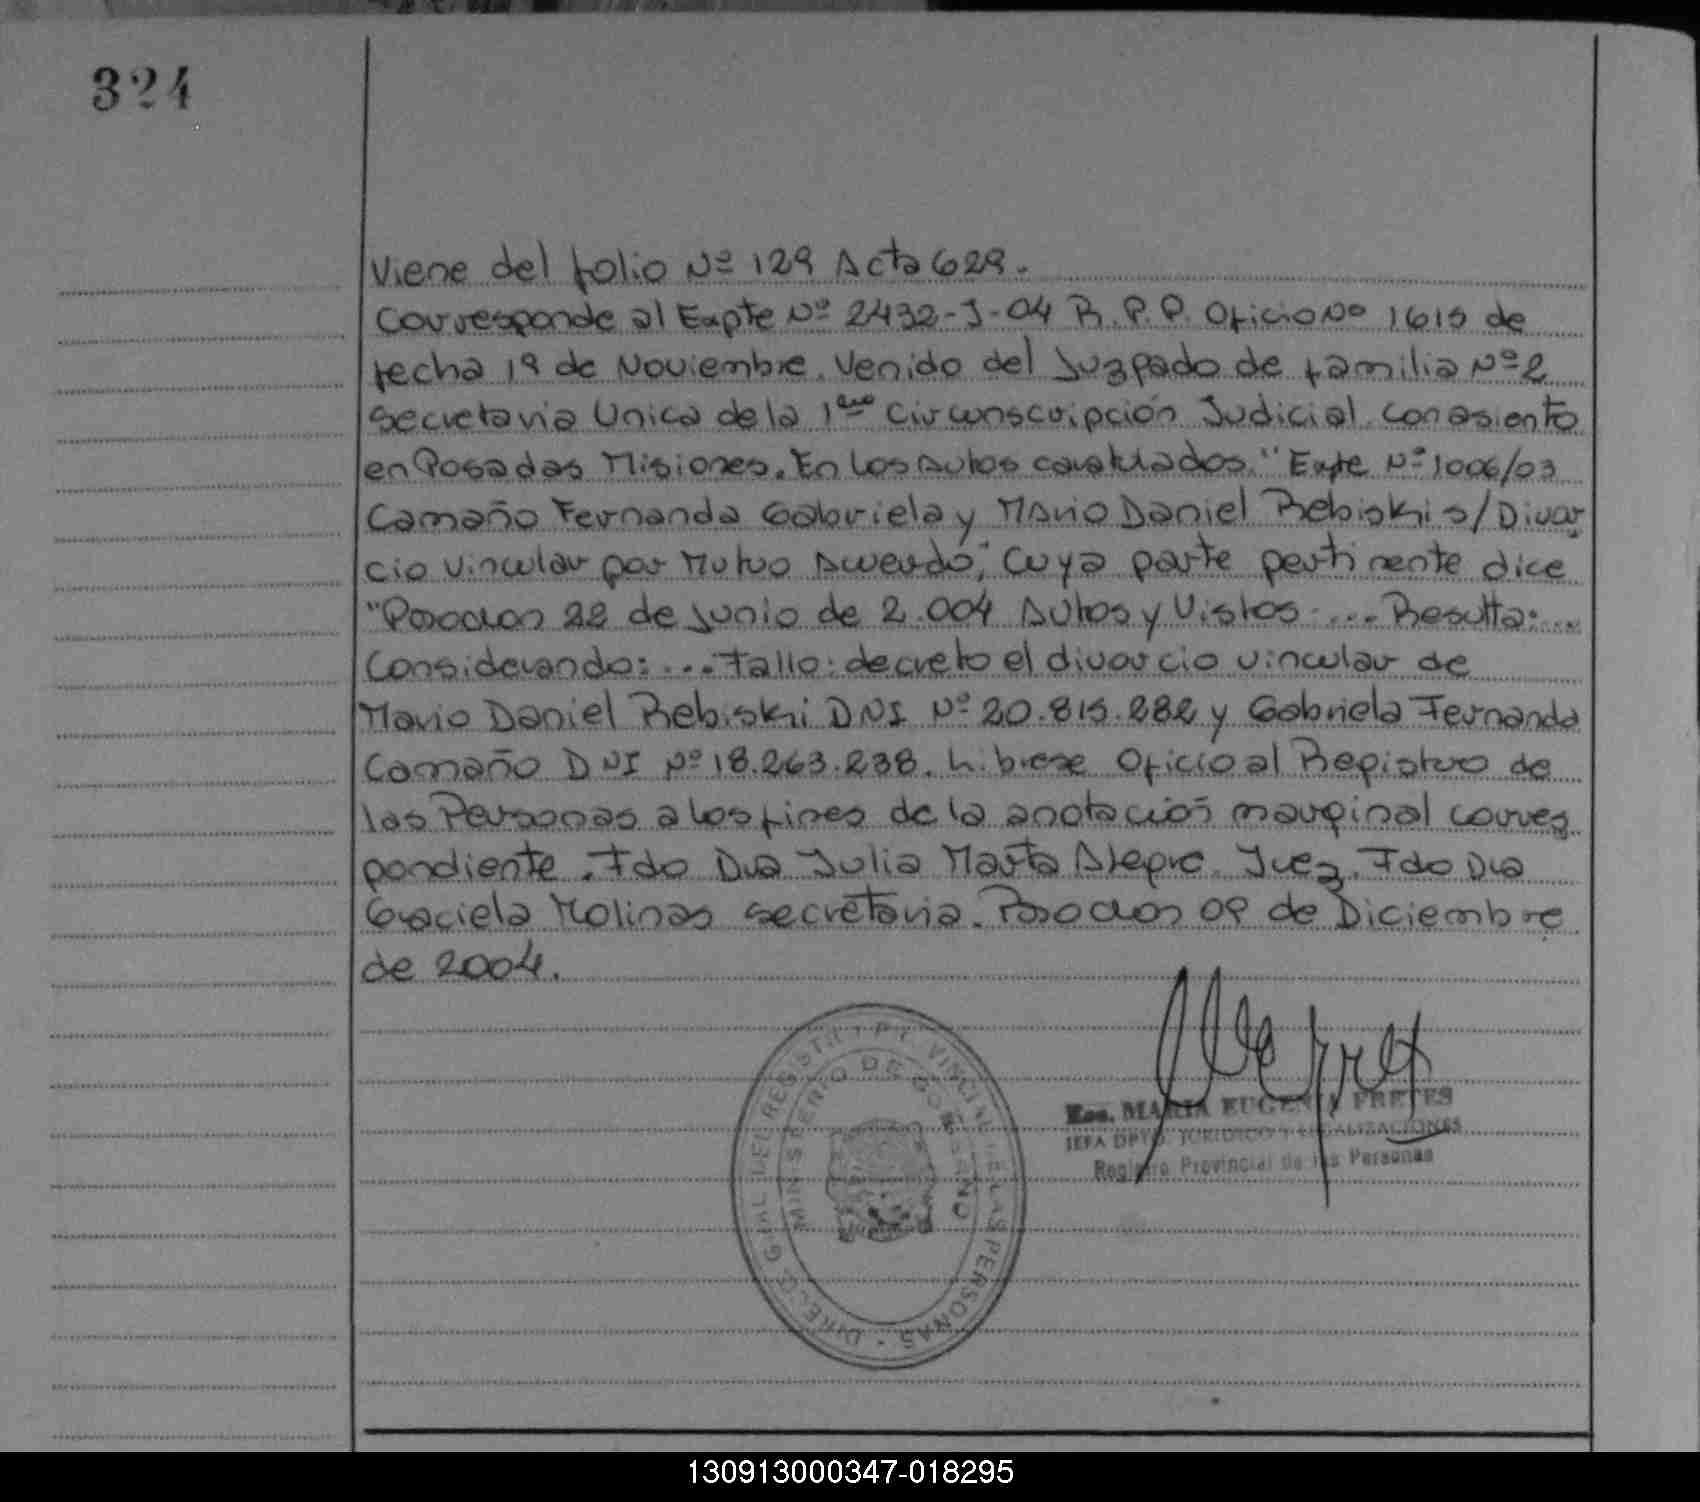 324
Viene del folio Nº 129 Acta 629.
Corresponde al Expte Nº 2432-J-04 R.P.P. Oficio Nº 1615 de
fecha 19 de Noviembre. Venido del Juzgado de familia Nº 2
Secretaria Unica de la 1era Circunscripción Judicial. con asiento
en Posadas Misiones. En Los Autos caratulados. "Expte Nº 1006/03
Camaño Fernanda Gabriela y Mario Daniel Rebiski s/Divor
cio Vincular por Mutuo Acuerdo", Cuya parte pertinente dice
"Posadas 22 de Junio de 2.004 Autos y Vistos .... Resulta: ...
Considerando: ... Fallo: decreto el divorcio vincular de
Mario Daniel Rebiski DNI Nº 20.815.282 y Gabriela Fernanda
Camaño DNI Nº 18.263.238. Librese Oficio al Registro de
las Personas a los fines de la anotación marginal corres
pondiente. Fdo Dra Julia Marta Alegre. Juez. Fdo Dra
Graciela Molinas secretaria. Posadas 09 de Diciembre
de 2004.
DIRECC. GRAL DEL REGISTRO PROVINCIAL DE LAS PERSONAS
MINISTERIO DE GOBIERNO
Esc. MARIA EUGENIA FRETES
JEFA DPTO. JURIDICO Y LEGALIZACIONES
Registro Provincial de las Personas
130913000347-018295